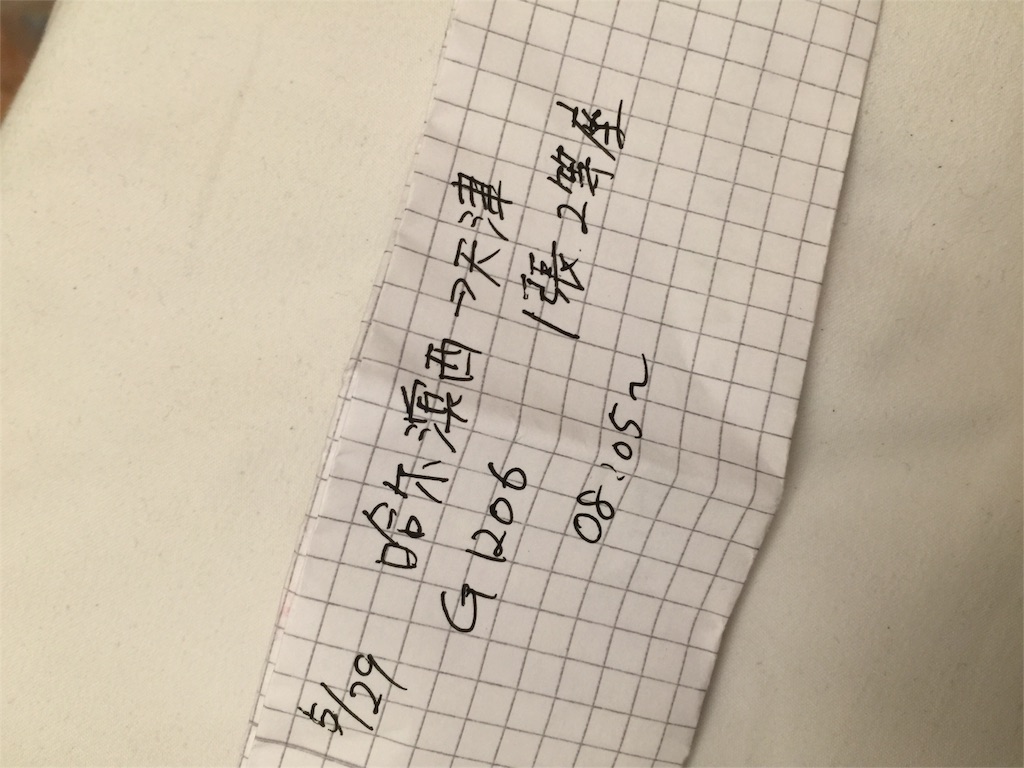 5/29
哈尔濱西→天津
G1206 1張 2等座
08:05~